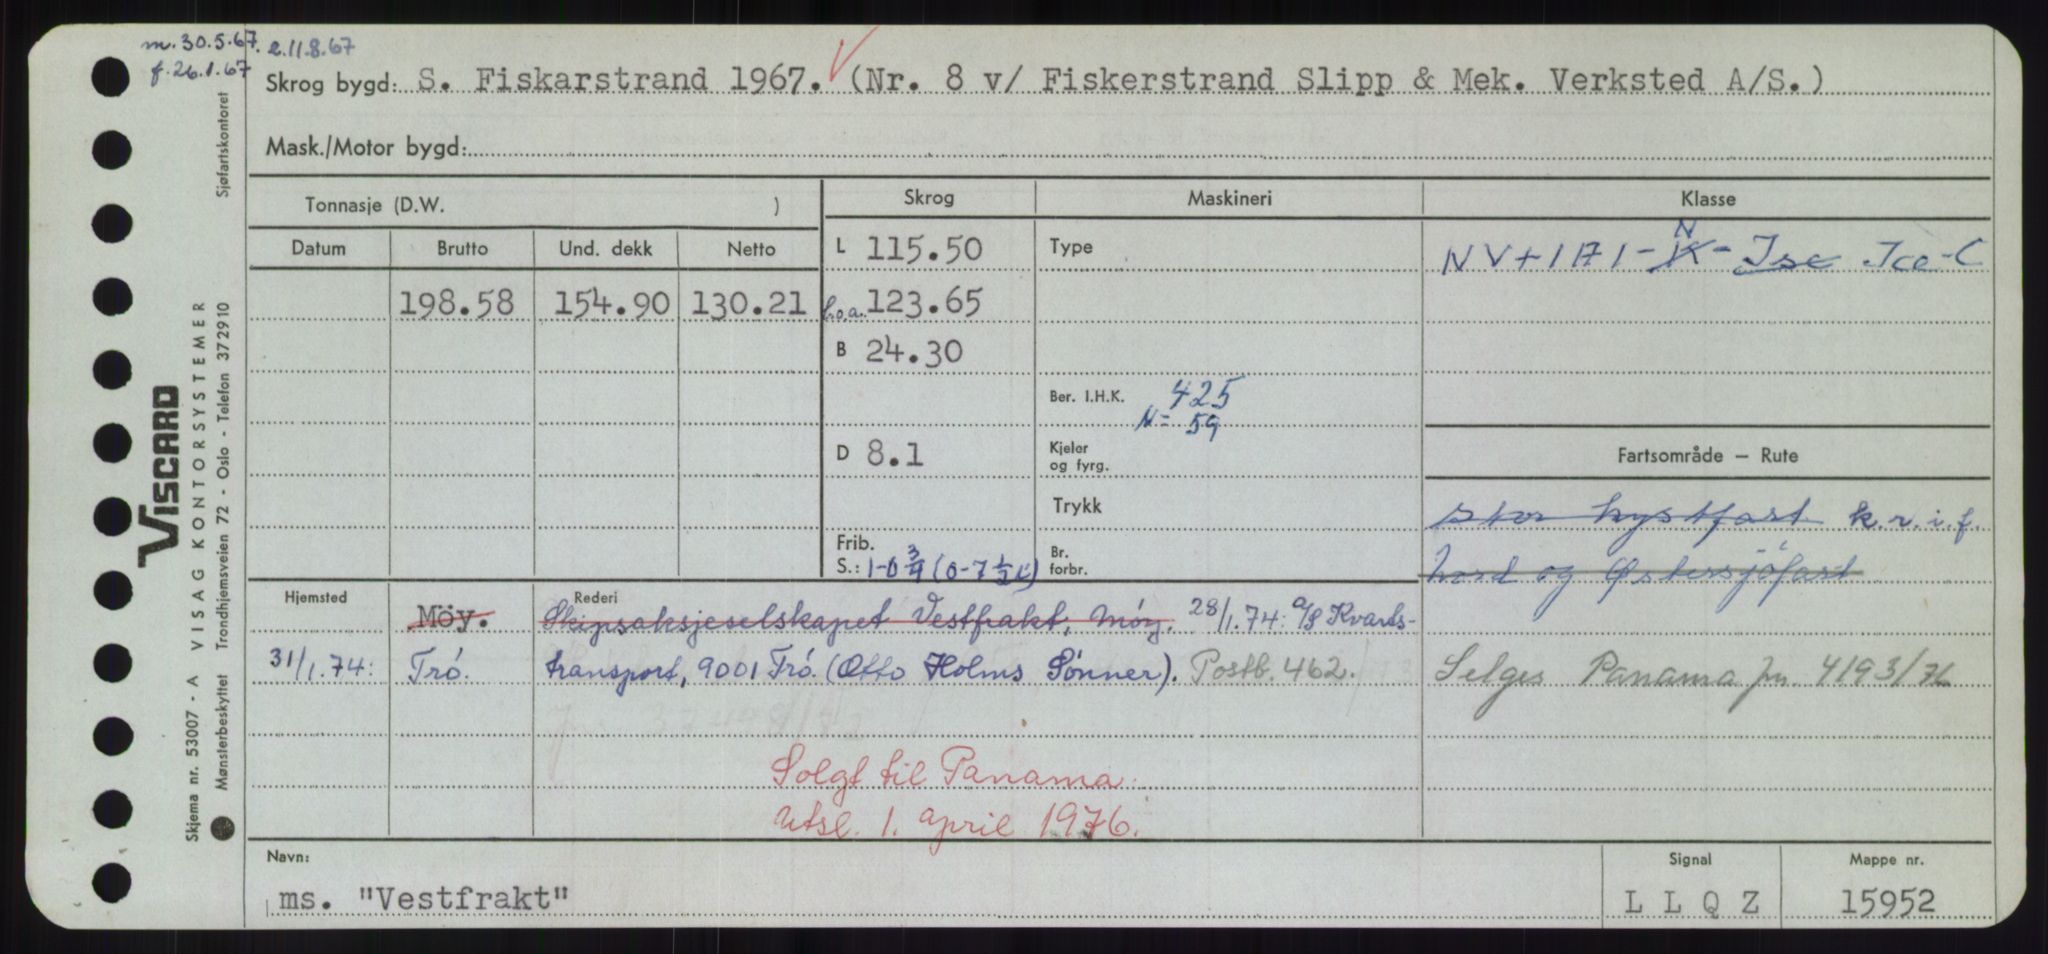 m. 30.5.67. e.11.8.67
f. 26.1.67
Skrog bygd: S. Fiskarstrand 1967. (Nr. 8 v/ Fiskerstrand Slipp & Mek. Verksted A/S.)
Mask./Motor bygd:
Tonnasje (D.W. ) Skrog Maskineri Klasse
Datum Brutto Und. dekk Netto L 115.50 Type NV+1A1-K-Ise Ice-C
N
198.58 154.90 130.21 L.o.a. 123.65
B 24.30
Ber. I.H.K. 425
N= 59
D 8.1 Kjeler og fyrg. Fartsområde — Rute
Trykk stor kystfart k.r.i.f.
Frib. S.: 1-0 3/4 (0-7 1/2 L) Br. forbr. Nord og Østersjöfart
Hjemsted Möy. Rederi Skipsaksjeselskapet Vestfrakt, Möy. 28/1.74: a/s Kvarts-
31/1.74: Tró. transport, 9001 Tró. (Otto Holms Sönner). Postb. 462. Selges Panama jn. 4193/76
Solgt til Panama.
Utsl. 1. april 1976.
Navn: Signal Mappe nr.
ms. "Vestfrakt" L L Q Z 15952
VISCARD
Skjema nr. 53007 - A VISAG KONTORSYSTEMER
Mønsterbeskyttet Trondhjemsveien 72 - Oslo - Telefon 372910 Sjøfartskontoret